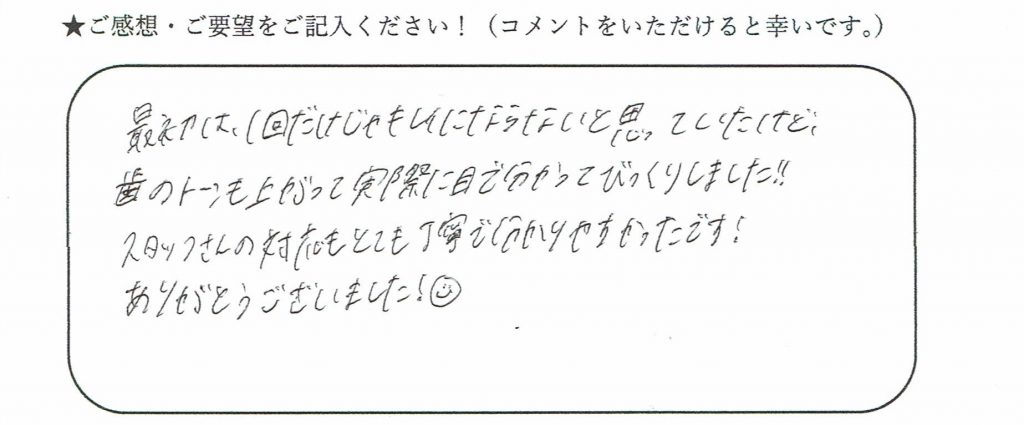 ★ご感想・ご要望をご記入ください！（コメントをいただけると幸いです。）
最初は、1回だけじゃキレイにならないと思っていたけど、
歯のトーンも上がって実際に目で分かってびっくりしました!!
スタッフさんの対応もとても丁寧で分かりやすかったです!
ありがとうございました!